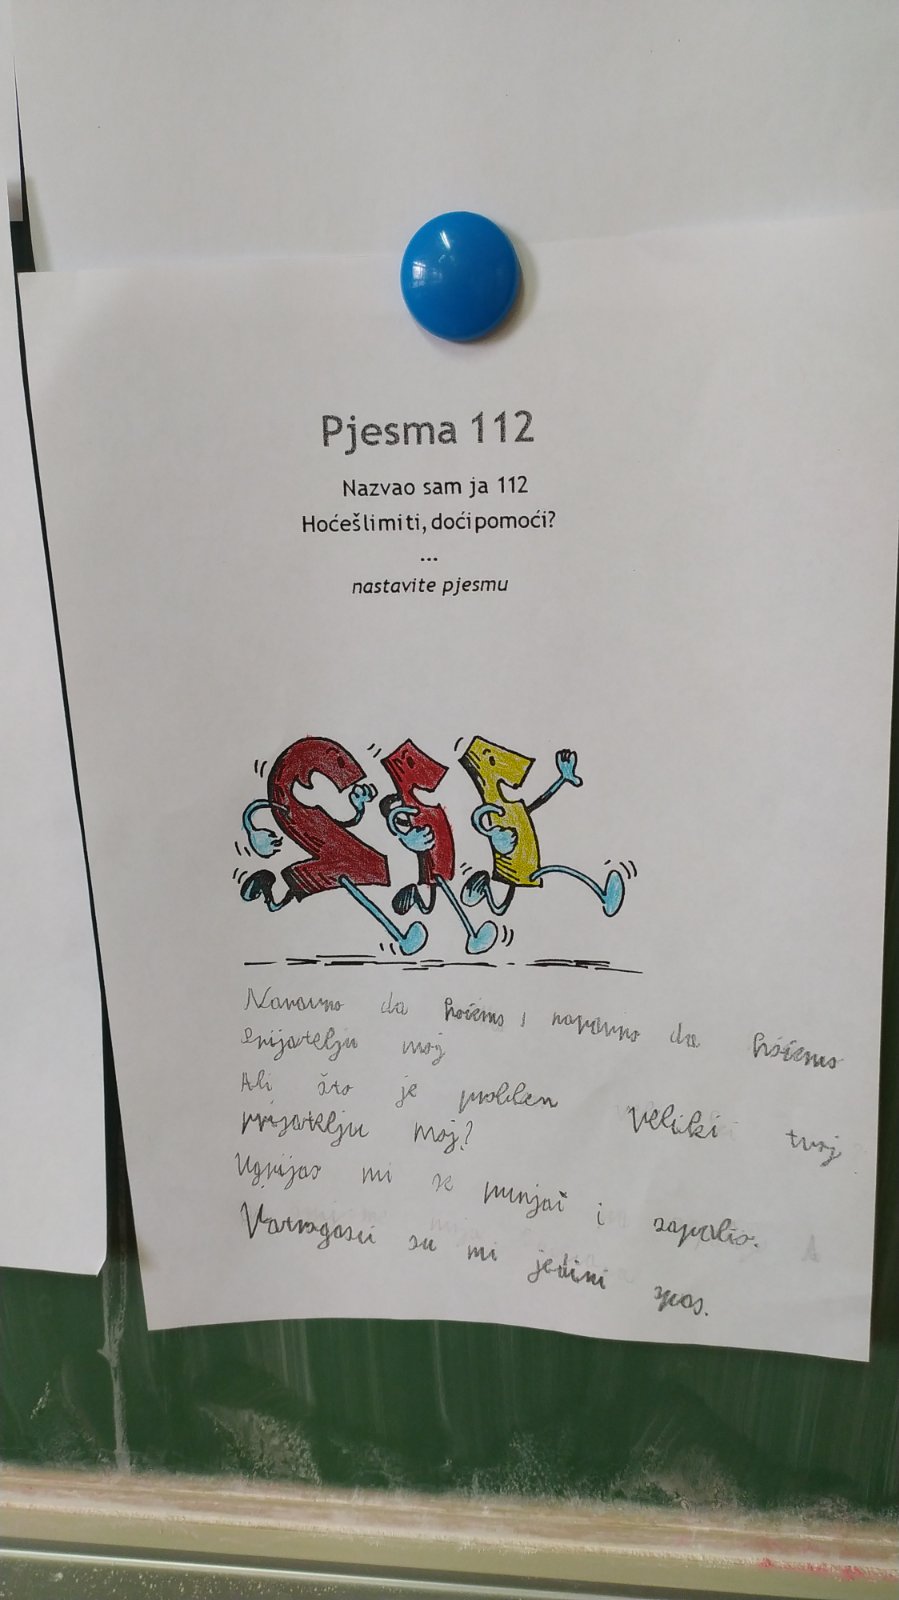 Pjesma 112
Nazvao sam ja 112
Hoćeš li mi ti, doći pomoći?
...
nastavite pjesmu
Naravno da hoćemo, naravno da hoćemo
prijatelju moj
Ali što je problem veliki tvoj
prijatelju moj?
Ugrijao mi se punjač i zapalio.
Vatrogasci su mi jedini spas.